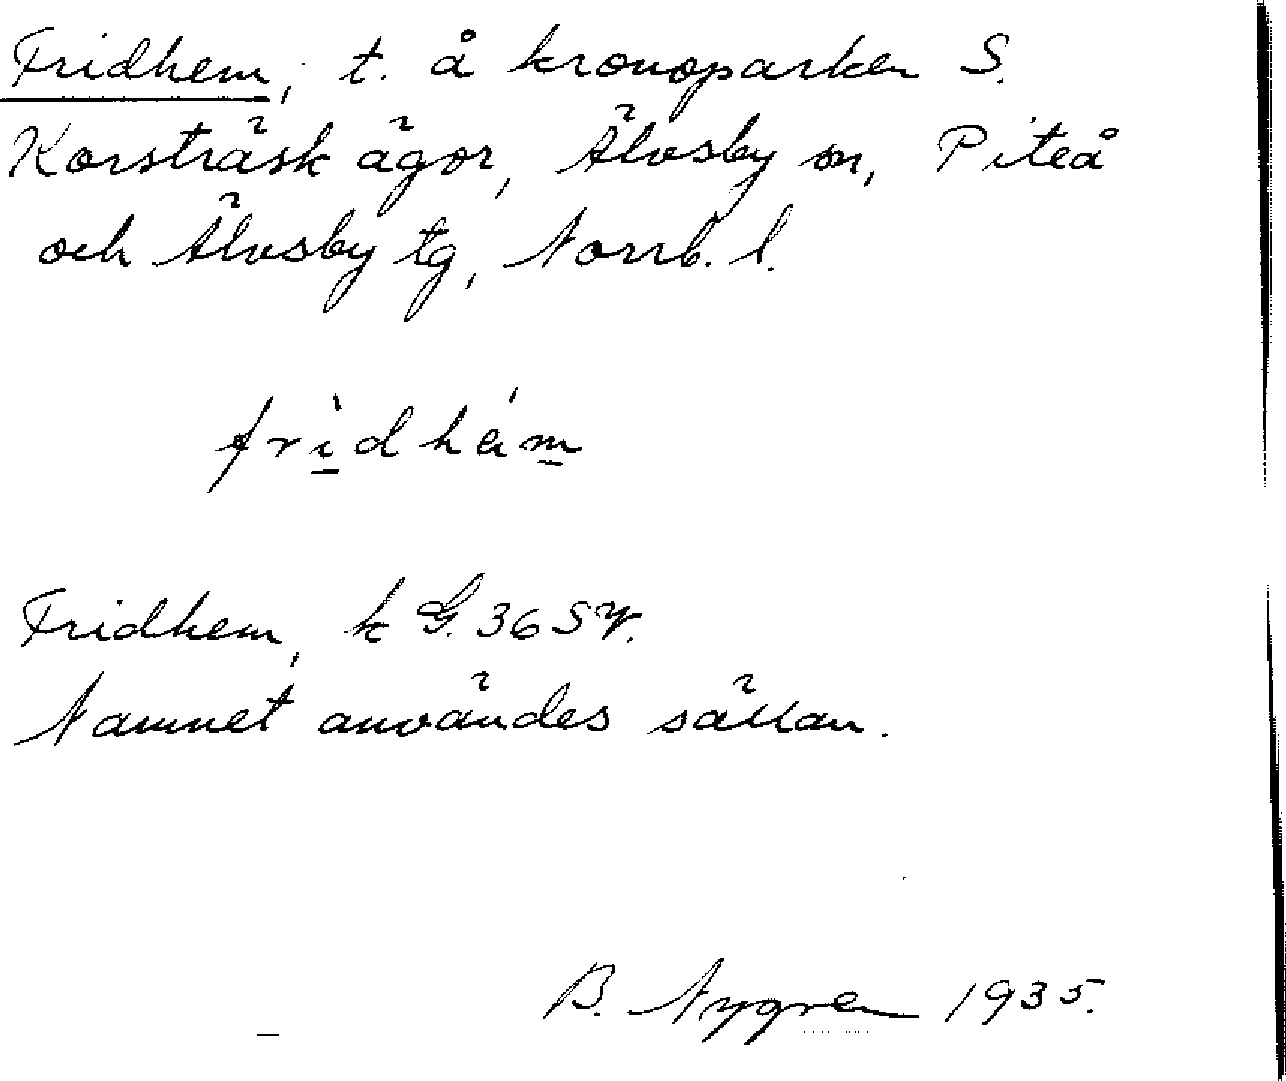 Fridhem, t. å kronoparken S.
Korsträsk ägor, Älvsby sn, Piteå
och Älvsby tg, Norrb. l.
frìdhém
Fridhem, k G. 36 SV.
Namnet användes sällan.
B. Nygren 1935.